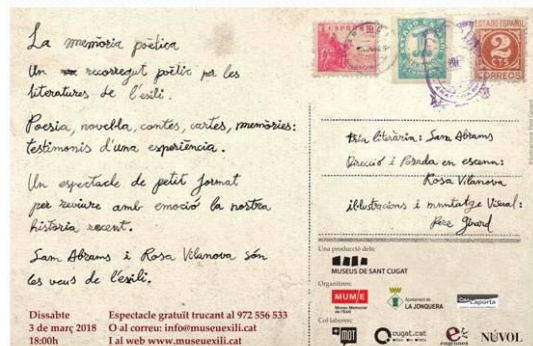 La memòria poètica
Un recorregut poètic per les
literatures de l'exili.
Poesia, novel·la, contes, cartes, memòries:
testimonis d'una experiència.
Un espectacle de petit format
per reviure amb emoció la nostra
història recent.
Sam Abrams i Rosa Vilanova són
les veus de l'exili.
Dissabte
3 de març 2018
18:00h
Espectacle gratuït trucant al 972 556 533
O al correu: info@museuexili.cat
I al web www.museuexili.cat
ESPAÑA
1
ESTADO ESPAÑOL
2
CTS
CORREOS
tria literària: Sam Abrams
Direcció i Posada en escena:
Rosa Vilanova
il·lustracions i muntatge Visual:
Pere Girard
Una producció dels:
MUSEUS DE SANT CUGAT
Organitzen:
MUME
Museu Memorial
de l'Exili
Ajuntament de
LA JONQUERA
Caporta
Col·laboren:
+MOT
cugat.cat
engrunes
NÚVOL